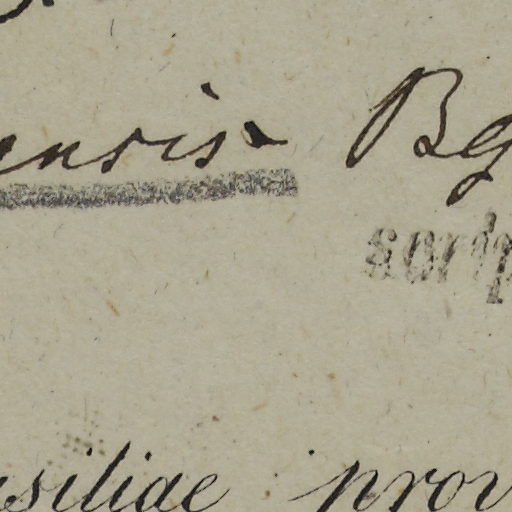 ensis Bg
scrip
asiliae prov